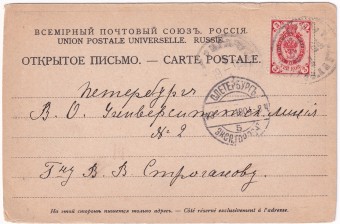 ВСЕМІРНЫЙ ПОЧТОВЫЙ СОЮЗЪ. РОССІЯ.
UNION POSTALE UNIVERSELLE. RUSSIE.
ОТКРЫТОЕ ПИСЬМО. — CARTE POSTALE.
С.ПЕТЕРБУРГЪ
Петербургъ
В. О. Университетск. линія
№ 2
Г-ну В. В. Строганову
На этой сторонѣ пишется только адресъ. — Côté réservé exclusivement à l'adresse.